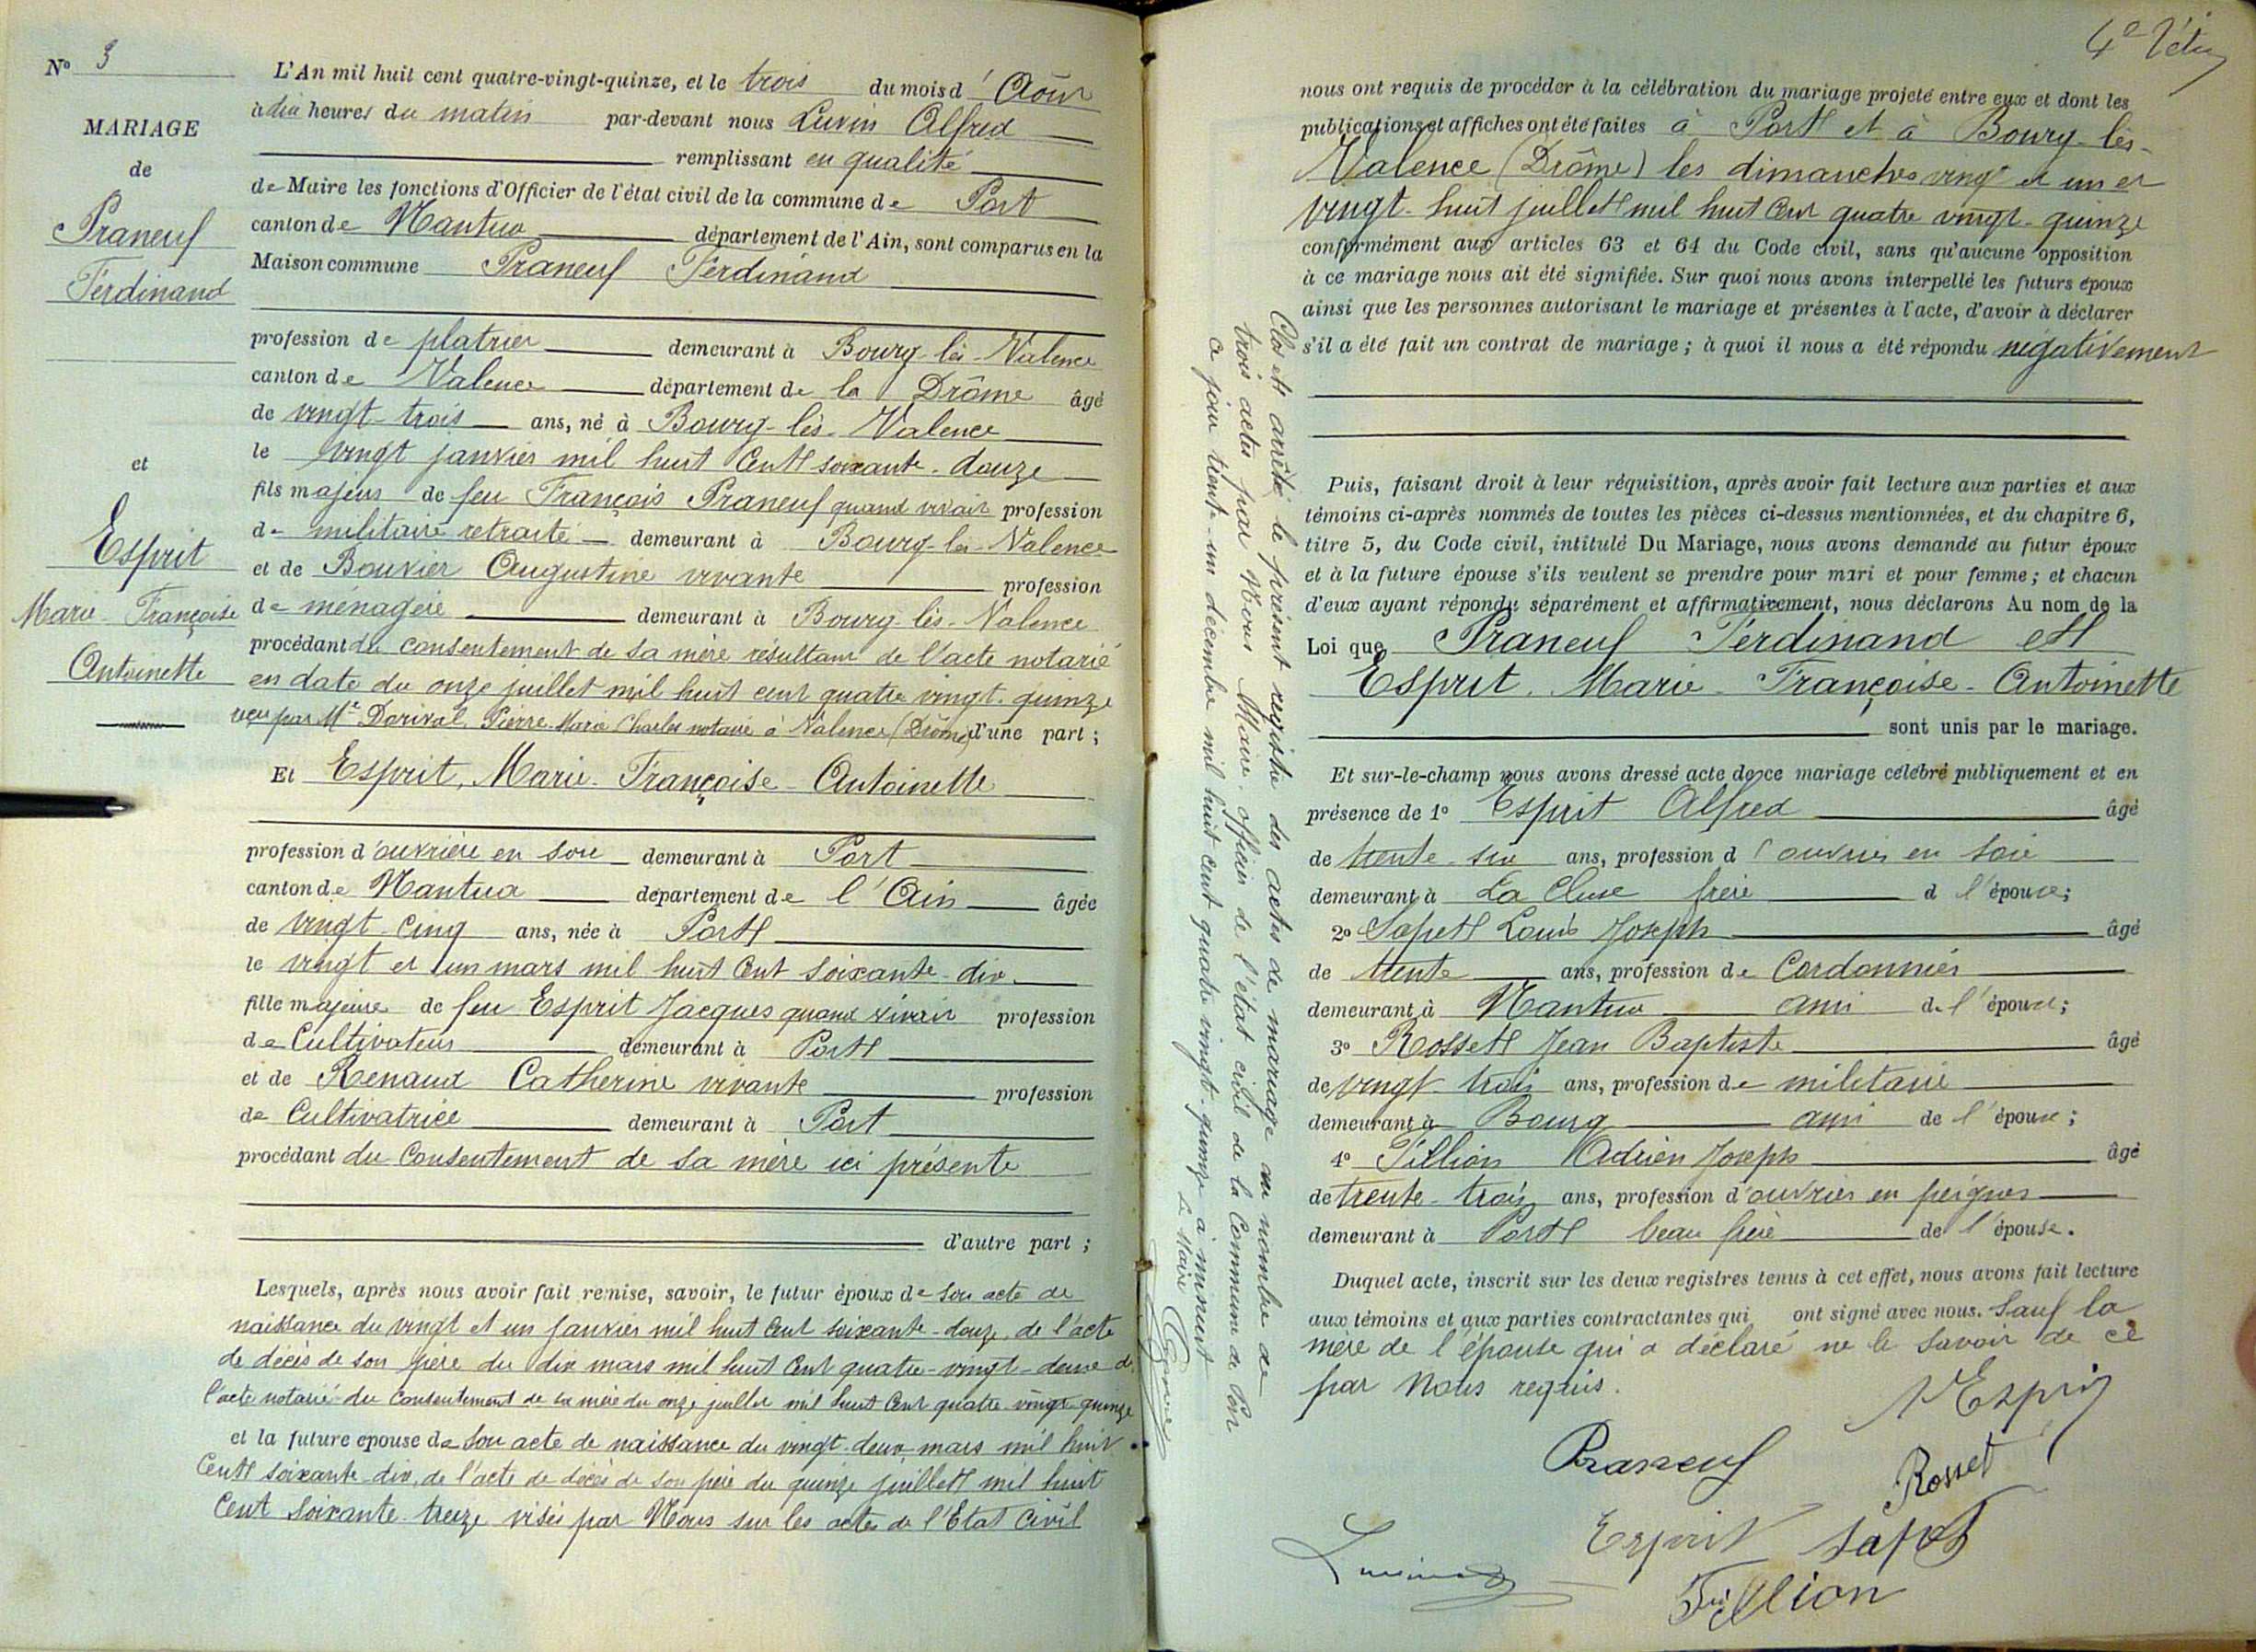 N° 3
MARIAGE
de
Praneuf
Ferdinand
et
Esprit
Marie-Françoise
Antoinette
L'An mil huit cent quatre-vingt-quinze, et le trois du mois d'Août
à dix heures du matin par-devant nous Luvin Alfred
remplissant en qualité
de Maire les fonctions d'Officier de l'état civil de la commune de Port
canton de Nantua département de l'Ain, sont comparus en la
Maison commune Praneuf Ferdinand
profession de platrier demeurant à Bourg-lès-Valence
canton de Valence département de la Drôme âgé
de vingt-trois ans, né à Bourg-lès-Valence
le vingt janvier mil huit cent soixante-douze
fils majeur de feu François Praneuf quand vivait profession
de militaire retraité demeurant à Bourg-lès-Valence
et de Bouvier Augustine vivante profession
de ménagère demeurant à Bourg-lès-Valence
procédant du consentement de sa mère résultant de l'acte notarié
en date du onze juillet mil huit cent quatre vingt-quinze
reçu par Me Dorival Pierre Marie Charles notaire à Valence (Drôme) d'une part ;
Et Esprit, Marie-Françoise-Antoinette
profession d'ouvrière en soie demeurant à Port
canton de Nantua département de l'Ain âgée
de vingt-cinq ans, née à Port
le vingt et un mars mil huit cent soixante-dix
fille majeure de feu Esprit Jacques quand vivait profession
de Cultivateur demeurant à Port
et de Renaud Catherine vivante profession
de Cultivatrice demeurant à Port
procédant du consentement de sa mère ici présente
d'autre part ;
Lesquels, après nous avoir fait remise, savoir, le futur époux de son acte de
naissance du vingt et un janvier mil huit cent soixante-douze, de l'acte
de décès de son père du dix mars mil huit cent quatre-vingt-douze de
l'acte notarié du consentement de sa mère du onze juillet mil huit cent quatre-vingt-quinze
et la future epouse de son acte de naissance du vingt-deux mars mil huit
cent soixante-dix, de l'acte de décès de son père du quinze juillet mil huit
cent soixante-treize visés par Nous sur les actes de l'Etat civil
Clos et arrêté le présent registre des actes de mariage au nombre de
trois actes par Nous Maire officier de l'état civil de la Commune de Port
ce jour trente-un décembre mil huit cent quatre vingt-quinze à minuit
Le Maire
nous ont requis de procéder à la célébration du mariage projeté entre eux et dont les
publications et affiches ont été faites à Port et à Bourg-lès-
Valence (Drôme) les dimanches vingt et un et
vingt-huit juillet mil huit cent quatre vingt-quinze
conformément aux articles 63 et 64 du Code civil, sans qu'aucune opposition
à ce mariage nous ait été signifiée. Sur quoi nous avons interpellé les futurs époux
ainsi que les personnes autorisant le mariage et présentes à l'acte, d'avoir à déclarer
s'il a été fait un contrat de mariage ; à quoi il nous a été répondu négativement
Puis, faisant droit à leur réquisition, après avoir fait lecture aux parties et aux
témoins ci-après nommés de toutes les pièces ci-dessus mentionnées, et du chapitre 6,
titre 5, du Code civil, intitulé Du Mariage, nous avons demandé au futur époux
et à la future épouse s'ils veulent se prendre pour mari et pour femme ; et chacun
d'eux ayant répondu séparément et affirmativement, nous déclarons Au nom de la
Loi que Praneuf Ferdinand et
Esprit Marie-Françoise-Antoinette
sont unis par le mariage.
Et sur-le-champ nous avons dressé acte de ce mariage célébré publiquement et en
présence de 1° Esprit Alfred âgé
de trente-six ans, profession d'ouvrier en soie
demeurant à La Cluse frère d l'épouse ;
2° Sapet Louis Joseph âgé
de trente ans, profession de Cordonnier
demeurant à Nantua ami de l'épouse ;
3° Rosset Jean Baptiste âgé
de vingt-trois ans, profession de militaire
demeurant à Bourg ami de l'épouse ;
4° Tillion Adrien Joseph âgé
de trente-trois ans, profession d'ouvrier en peignes
demeurant à Port beau frère de l'épouse.
Duquel acte, inscrit sur les deux registres tenus à cet effet, nous avons fait lecture
aux témoins et aux parties contractantes qui ont signé avec nous. Sauf la
mère de l'épouse qui a déclaré ne le savoir de ce
par Nous requis.
Esprit
Praneuf
Rosset
Esprit Sapet
Tillion